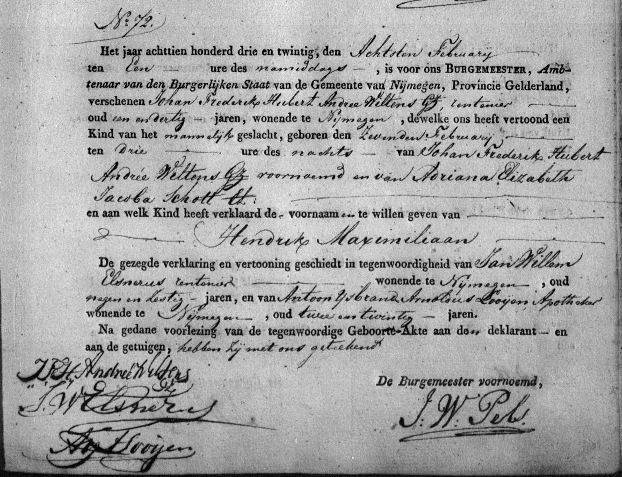 No. 72.
Het jaar achttien honderd drie en twintig, den Achtsten February
ten Een ure des namiddags, is voor ons BURGEMEESTER, Amb-
tenaar van den Burgerlijken Staat van de Gemeente van Nijmegen, Provincie Gelderland,
verschenen Johan Frederik Hubert Andree Wiltens Gz rentenier
oud een en dertig jaren, wonende te Nijmegen, dewelke ons heeft vertoond een
Kind van het mannelijk geslacht, geboren den Zevenden February
ten drie ure des nachts van Johan Frederik Hubert
Andree Wiltens Gz voornoemd en van Adriana Elizabeth
Jacoba Schott
en aan welk Kind heeft verklaard de voornaamen te willen geven van
Hendrik Maximiliaan
De gezegde verklaring en vertooning geschiedt in tegenwoordigheid van Jan Willem
Elsnerus rentenier wonende te Nijmegen, oud
negen en zestig jaren, en van Antoon Ysbrand Looijen Apotheker
wonende te Nijmegen, oud twee en twintig jaren.
Na gedane voorlezing van de tegenwoordige Geboorte-Akte aan den deklarant en
aan de getuigen, hebben zij met ons geteekend
J F H Andree Wiltens
Gz
De Burgemeester voornoemd,
J. W. Elsnerus
J. W. Pels.
Looijen